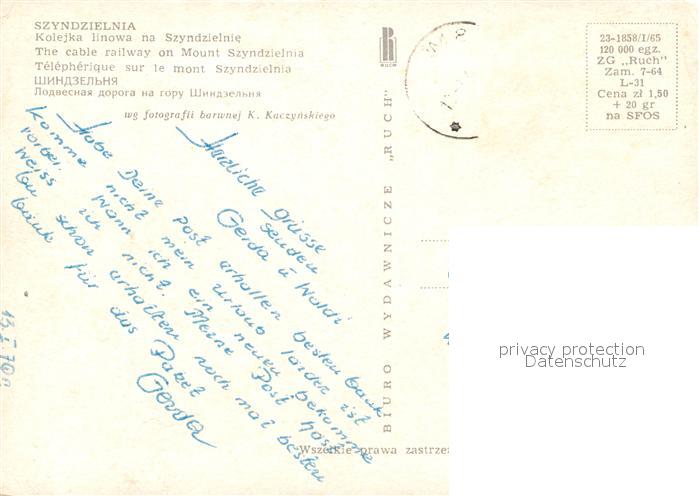 SZYNDZIELNIA
Kolejka linowa na Szyndzielnię
The cable railway on Mount Szyndzielnia
Téléphérique sur le mont Szyndzielnia
ШИНДЗЕЛЬНЯ
Подвесная дорога на гору Шиндзельня
wg fotografii barwnej K. Kaczyńskiego
RUCH
BIURO WYDAWNICZE „RUCH"
23-1858/I/65
120 000 egz.
ZG „Ruch"
Zam. 7-64
L-31
Cena zł 1,50
+ 20 gr
na SFOS
Herzliche grüsse
senden
Gerda u Waldi
Habe Deine Post erhalten besten Dank
Komme nicht mein Urlaub leider ist
vorbei. Wann ich ein neuen bekomme
Weiss ich nicht. Meine Post hast
Du schon erhalten noch mal besten
Dank für das Paket
Gerda
privacy protection
Datenschutz
Wszelkie prawa zastrze